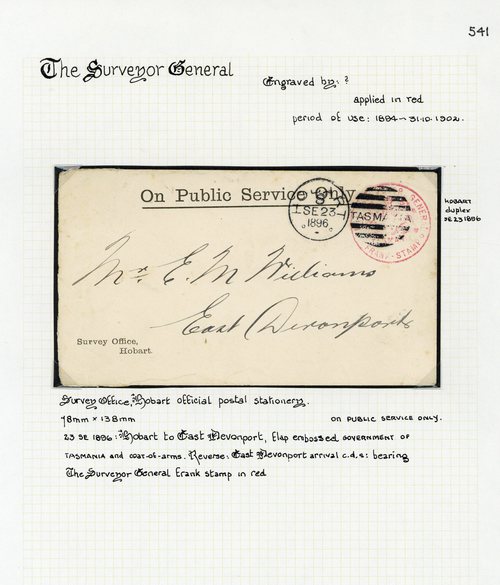 541
The Surveyor General
Engraved by: ?
applied in red
period of use: 1894 - 31.10.1902.
On Public Service Only.
HOBART
8
SE 23
1896
TASMANIA
FRANK STAMP
HOBART
duplex
SE 23 1896
Mr. E. M Williams
East Devonport
Survey Office,
Hobart.
Survey Office, Hobart official postal stationery.
78mm × 138mm
ON PUBLIC SERVICE ONLY.
23 SE 1896: Hobart to East Devonport, flap embossed GOVERNMENT OF
TASMANIA and coat-of-arms. Reverse: East Devonport arrival c.d.s: bearing
The Surveyor General frank stamp in red